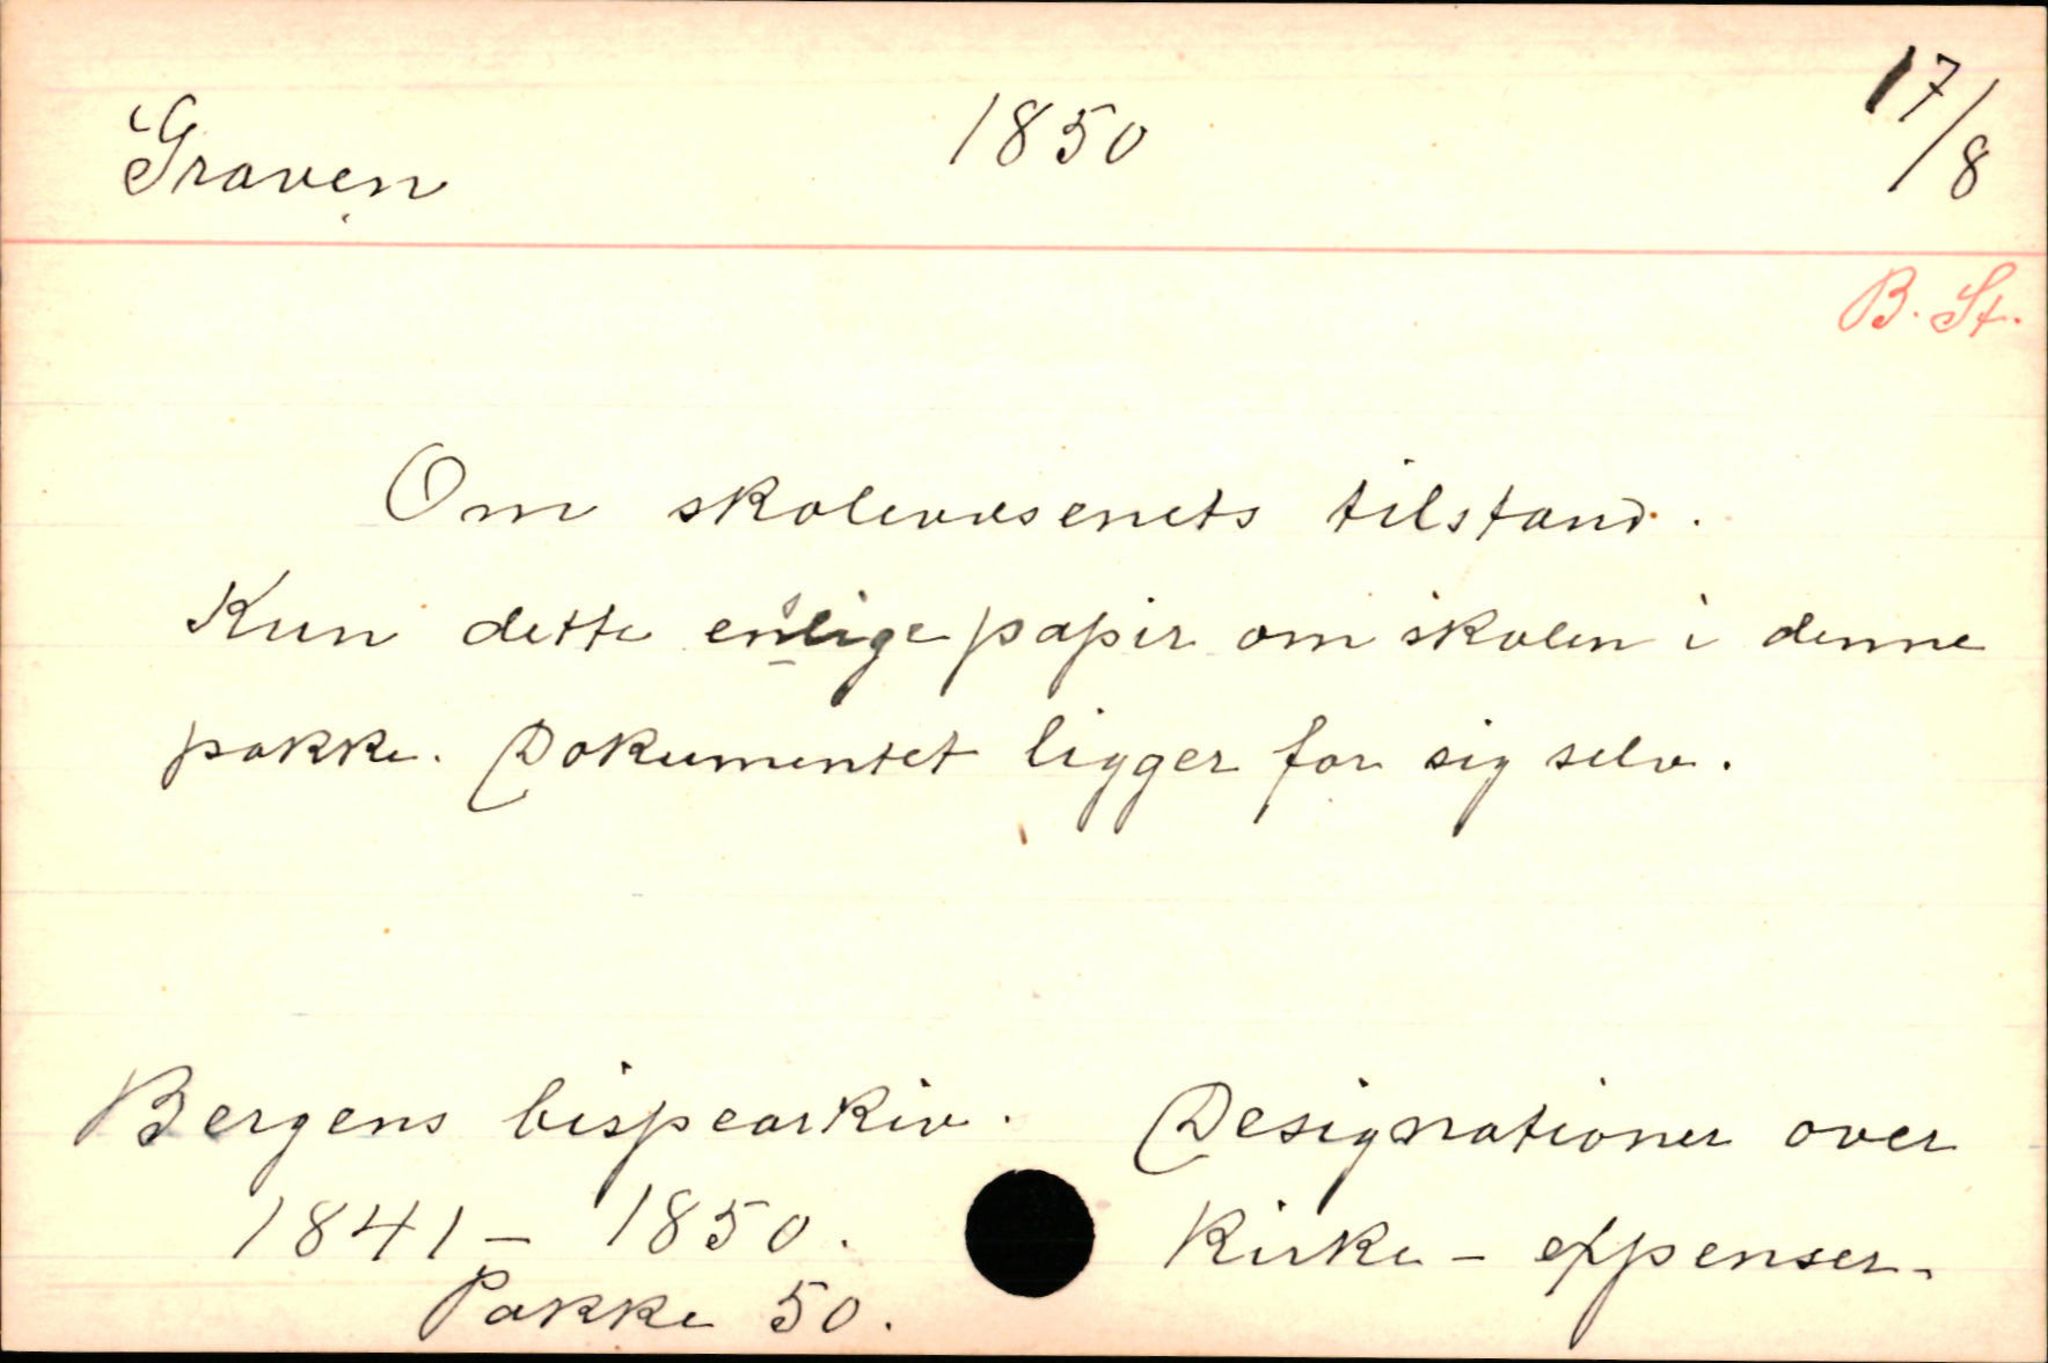 Graven 1850 17/8
B. St.
Om skolevesenets tilstand.
Kun dette enlige papir om skolen i denne
pakke. Dokumentet ligger for sig selv.
Bergens bispearkiv. Designationer over
1841 - 1850. Kirke - expenser.
Pakke 50.